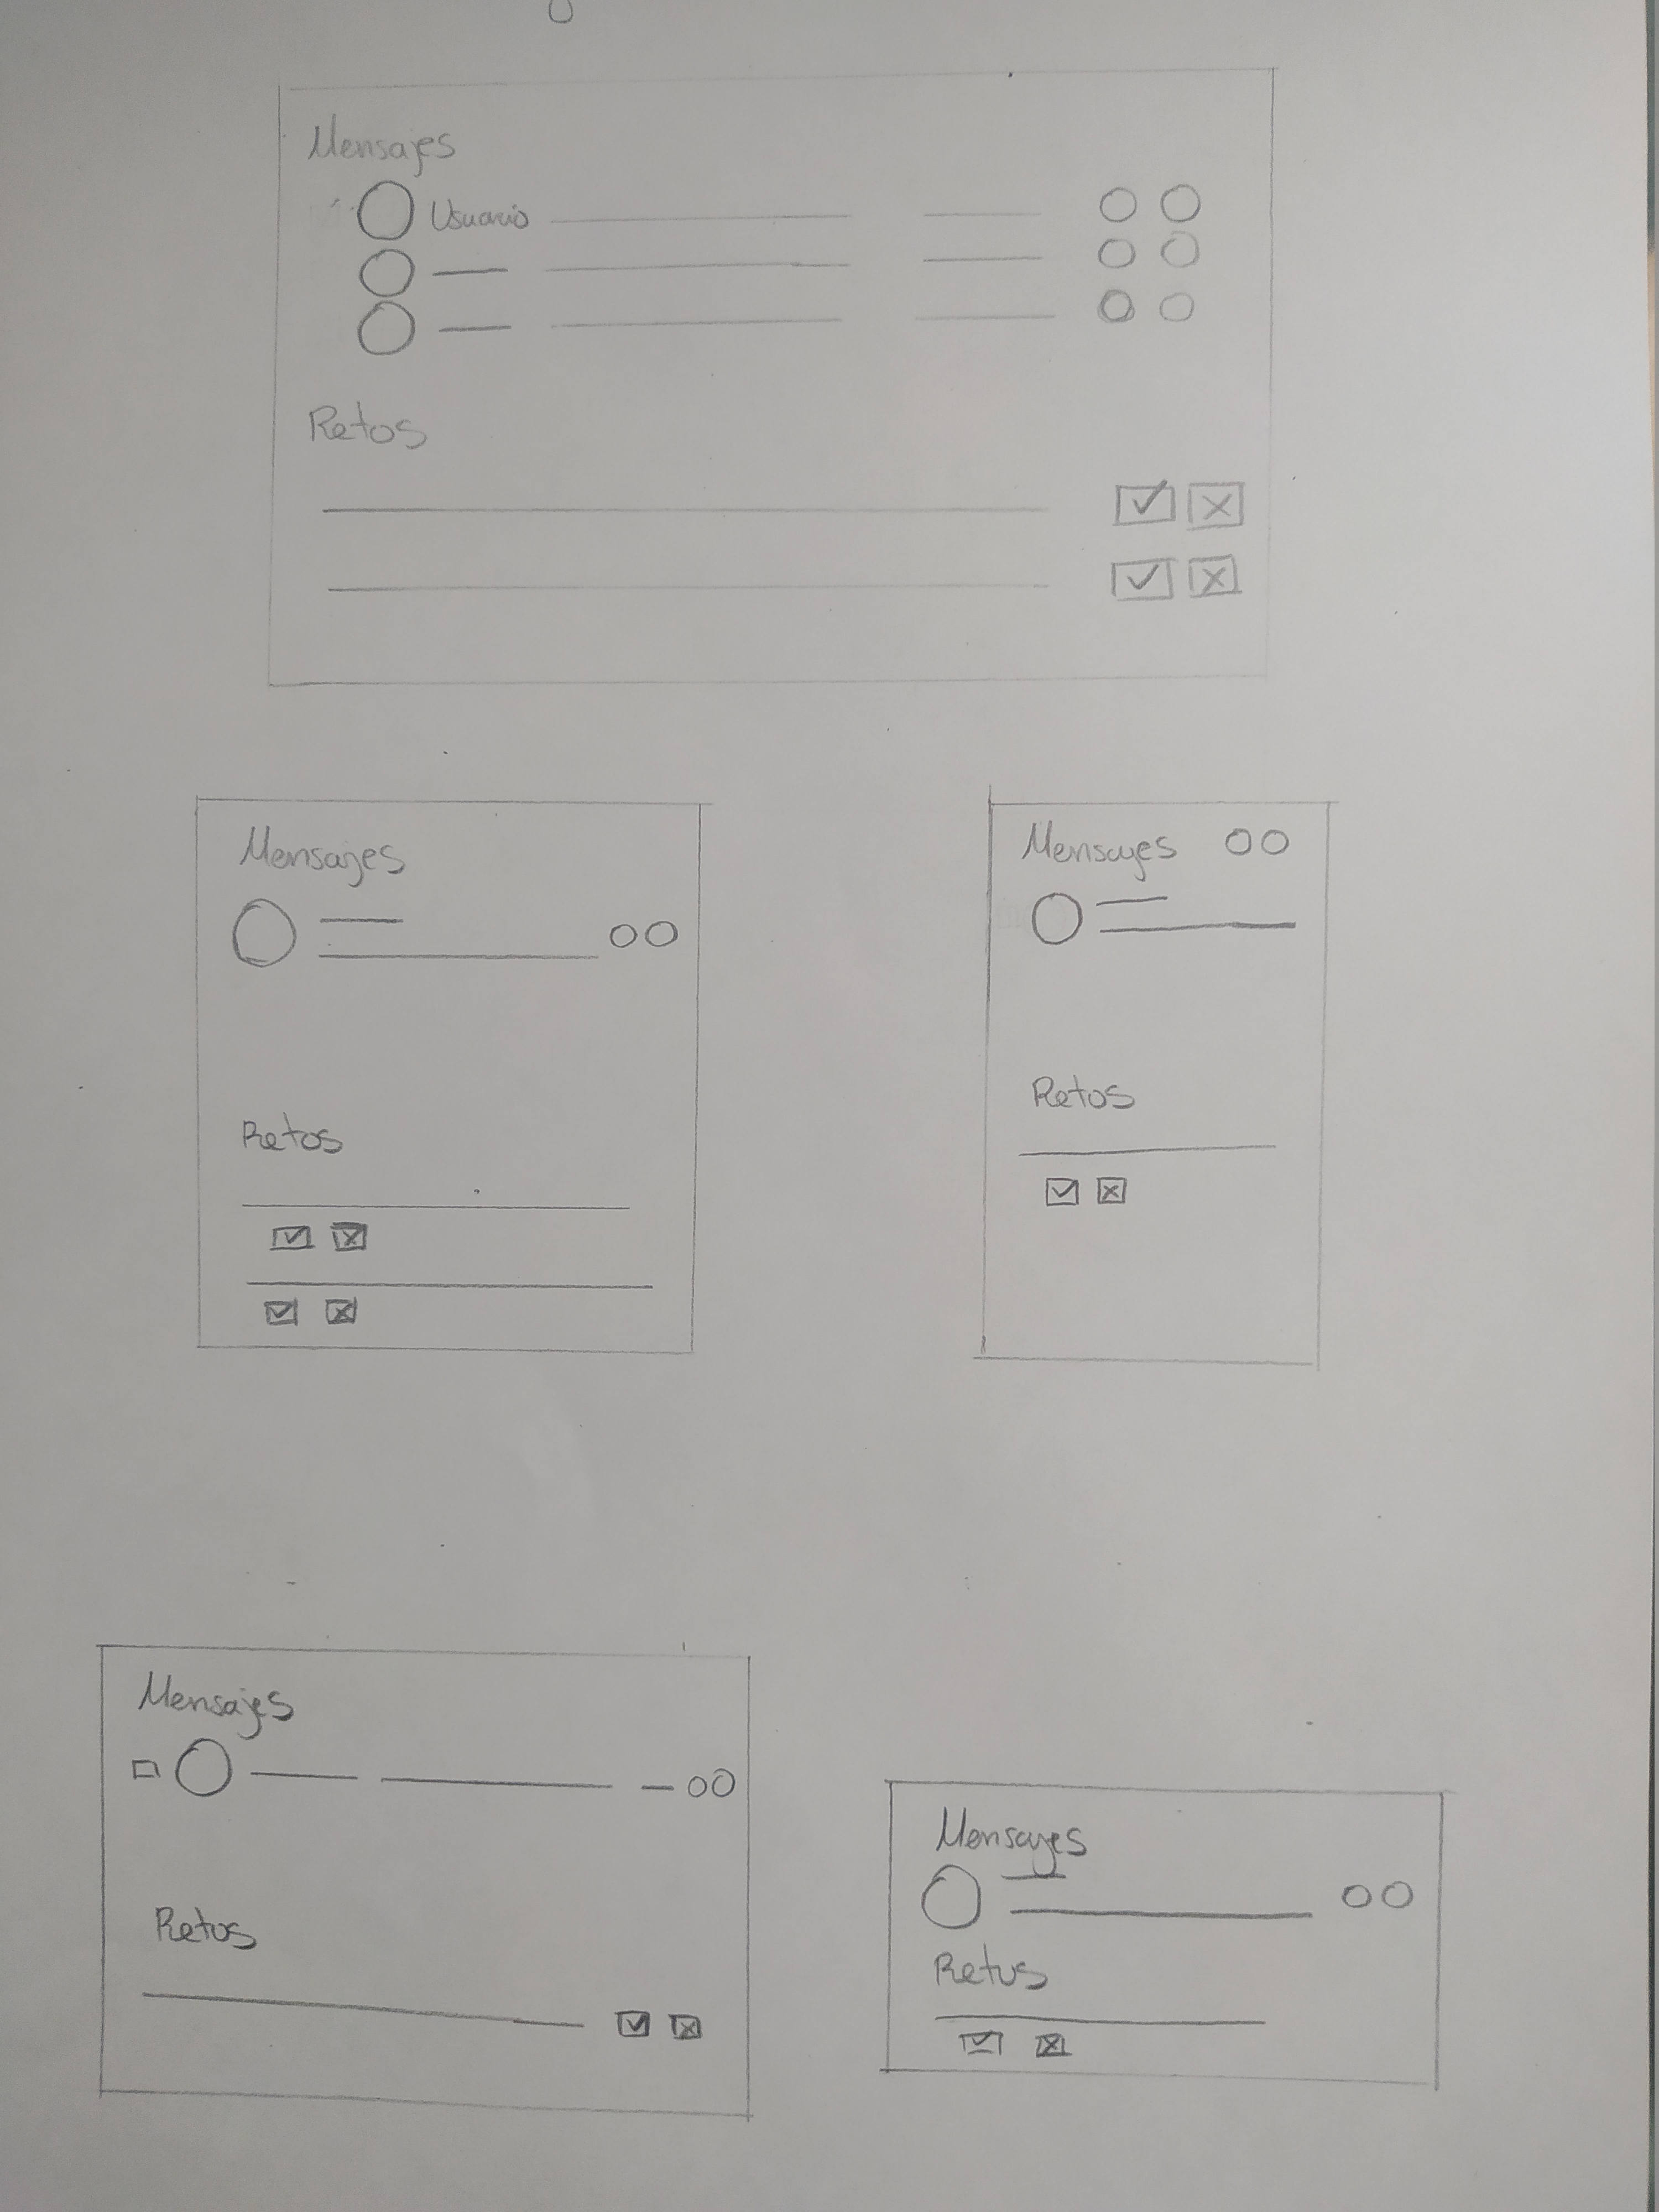 Mensajes
Usuario
Retos
Mensajes
Retos
Mensajes
Retos
Mensajes
Retos
Mensajes
Retos